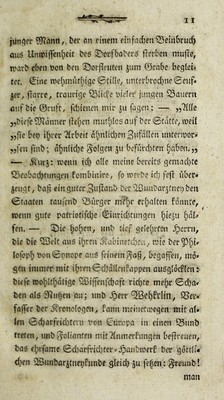 11
junger Mann, der an einem einfachen Beinbruch
aus Unwissenheit des Dorfbaders sterben mußte,
ward eben von den Dorfleuten zum Grabe beglei-
tet. Eine wehmüthige Stille, unterbrochne Seuf-
zer, starre, traurige Blicke vieler jungen Bauern
auf die Gruft, schienen mir zu sagen: — „Alle
„diese Männer stehen muthlos auf der Stätte, weil
„sie bey ihrer Arbeit ähnlichen Zufällen unterwor-
„fen sind; ähnliche Folgen zu befürchten haben.“
— Kurz: wenn ich alle meine bereits gemachte
Beobachtungen kombinire, so werde ich fest über-
zeugt, daß ein guter Zustand der Wundarzney den
Staaten tausend Bürger mehr erhalten könnte,
wenn gute patriotische Einrichtungen hiezu häl-
fen. — Die hohen, und tief gelehrten Herrn,
die die Welt aus ihren Kabinetchen, wie der Phi-
losoph von Synope aus seinem Faß, begaffen, mö-
gen immer mit ihren Schällenkappen ausglöckeln:
diese wohlthätige Wissenschaft richte mehr Scha-
den als Nutzen an; und Herr Wehrlin, Ver-
fasser der Kronologen, kann meinetwegen mit al-
len Scharfrichtern von Europa in einen Bund
treten, und Folianten mit Anmerkungen bestreuen,
das ehrsame Scharfrichter-Handwerk der göttli-
chen Wundarzneykunde gleich zu setzen: Freund!
man